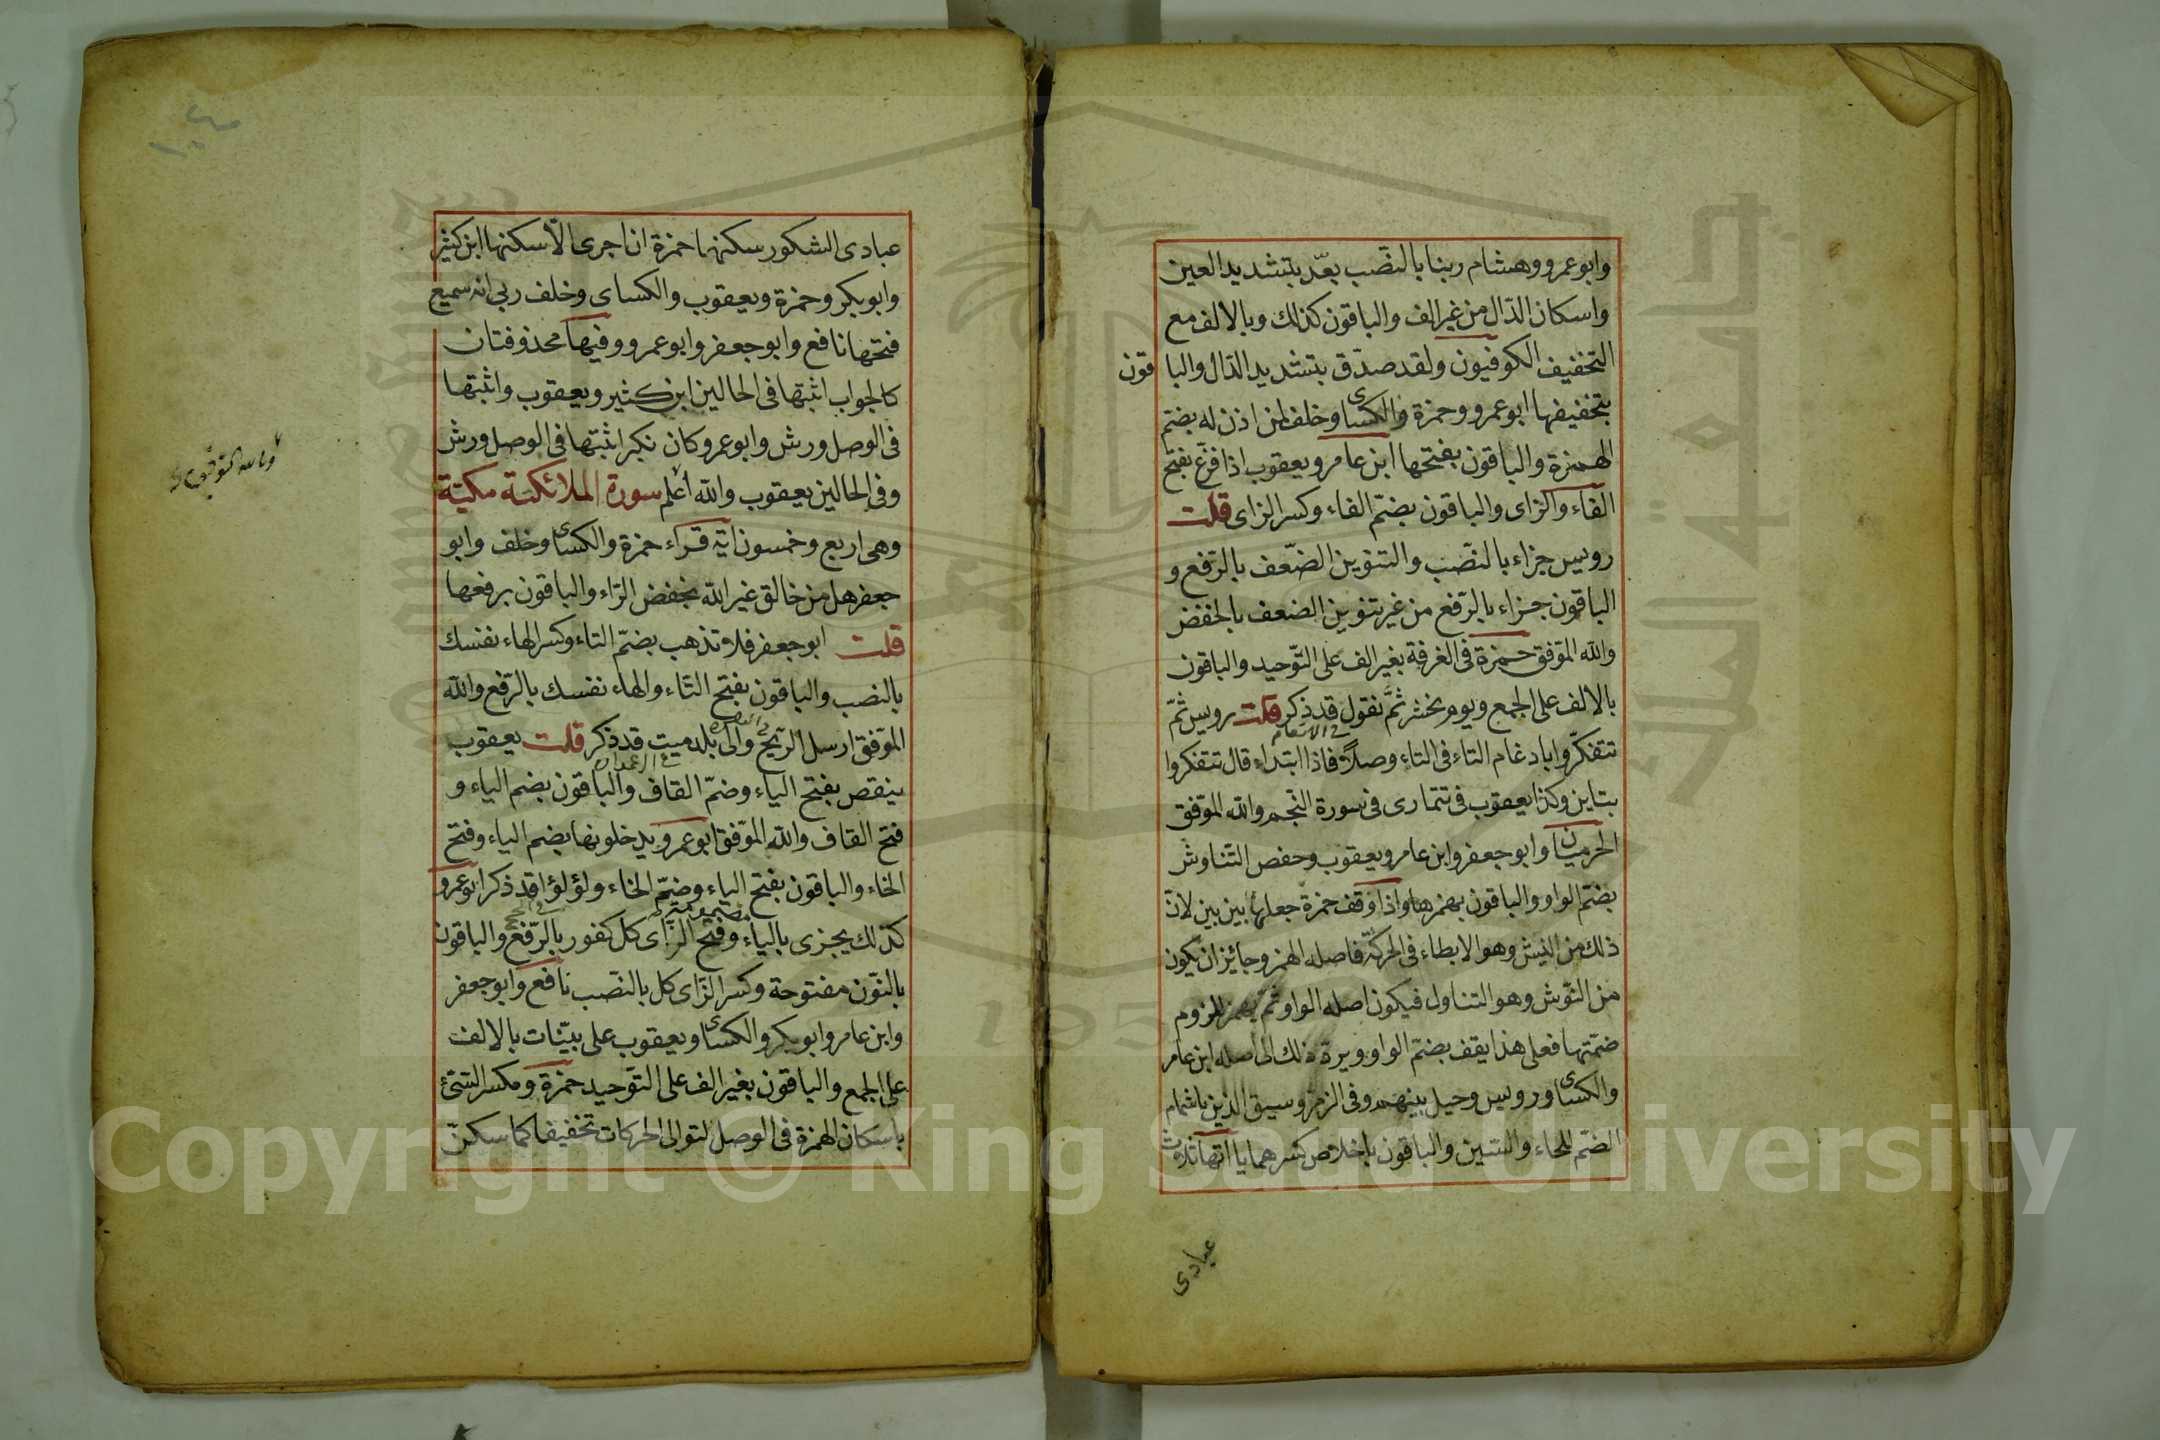 وابو عمرو وهشام ربنا بالنصب بعّد بتشديد العين
واسكان الدّال من غير الف والباقون كذلك وبالالف مع
التخفيف الكوفيون ولقد صدّق بتشديد الدّال والباقون
بتخفيفها ابو عمرو وحمزة والكسای وخلف لمن اذن له بضمّ
الهمزة والباقون بفتحها ابن عامر ويعقوب اذا فزّع بفتح
الفاء والزاى والباقون بضمّ الفاء وكسر الزاى قلت
رويس جزاء بالنّصب والتنوين الضّعف بالرّفع و
الباقون جزاء بالرّفع من غير تنوين الضعف بالخفض
والله الموّفق حمزة فى الغرفة بغير الف على التّوحيد والباقون
بالالف على الجمع ويوم نحشر ثمّ نقول قد ذكر قلت رويس ثمّ
فى الانعام
تتفكّروا بادغام التاء فى التاء وصلاً فاذا ابتداء قال تتفكروا
بتاين وكذا يعقوب فى تتمارى فى سورة النّجم والله الموّفق
الحرميان وابو جعفر وابن عامر ويعقوب وحفص التّناوش
بضمّ الواو والباقون بهمزها واذا وقف حمزة جعلها بين بين لانّ
ذلك من النيش وهو الابطاء فى الحركة فاصله الهمز وجائز ان يكون
من النّوش وهو التناول فيكون اصله الواو ثمّ يهمز للزوم
ضمّتها فعلى هذا يقف بضمّ الواو ويردّ ذلك الى اصله ابن عامر
والكسای ورويس وحيل بينهم وفى الزمر وسيق الذين باشمام
الضّم للحاء والسّين والباقون باخلاص كسرهما ياآتها ثلاث
عبادى
عبادى الشكور سكنها حمزة ان اجرى الّا سكنها ابن كثير
وابو بكر وحمزة ويعقوب والكساى وخلف ربى انه سميع
فتحها نافع وابو جعفر وابو عمرو وفيها محذوفتان
كالجواب اثبتها فى الحالين ابن كثير ويعقوب واثبتها
فى الوصل ورش وابو عمرو وكان نكير اثبتها فى الوصل ورش
وفى الحالين يعقوب والله أعلم سورة الملائكة مكيّة
وهى اربع وخمسون اية قراء حمزة والكسای وخلف وابو
جعفر هل من خالق غير الله بخفض الرّاء والباقون برفعها
قلت ابو جعفر فلا تذهب بضمّ التاء وكسر الهاء نفسك
بالنصب والباقون بفتح التّاء والهاء نفسك بالرّفع والله
الموّفق ارسل الرّيح والى بلد ميت قد ذكر قلت يعقوب
ينقص بفتح الياء وضمّ القاف والباقون بضم الياء و
فتح القاف والله الموّفق ابو عمرو يدخلونها بضم الياء وفتح
الخاء والباقون بفتح الياء وضمّ الخاء ولؤلؤا قد ذكر ابو عمرو
فى الحج
كذلك يجزى بالياء وفتح الزّاى كل كفور بالرّفع والباقون
بالنّون مفتوحة وكسر الزّاى كل بالنّصب نافع وابو جعفر
وابن عامر وابو بكر والكسای ويعقوب على بيّنات بالالف
على الجمع والباقون بغير الف على التّوحيد حمزة ومكر السّيّئ
باسكان الهمزة فى الوصل لتوالى الحركات تخفيفا كما سكن